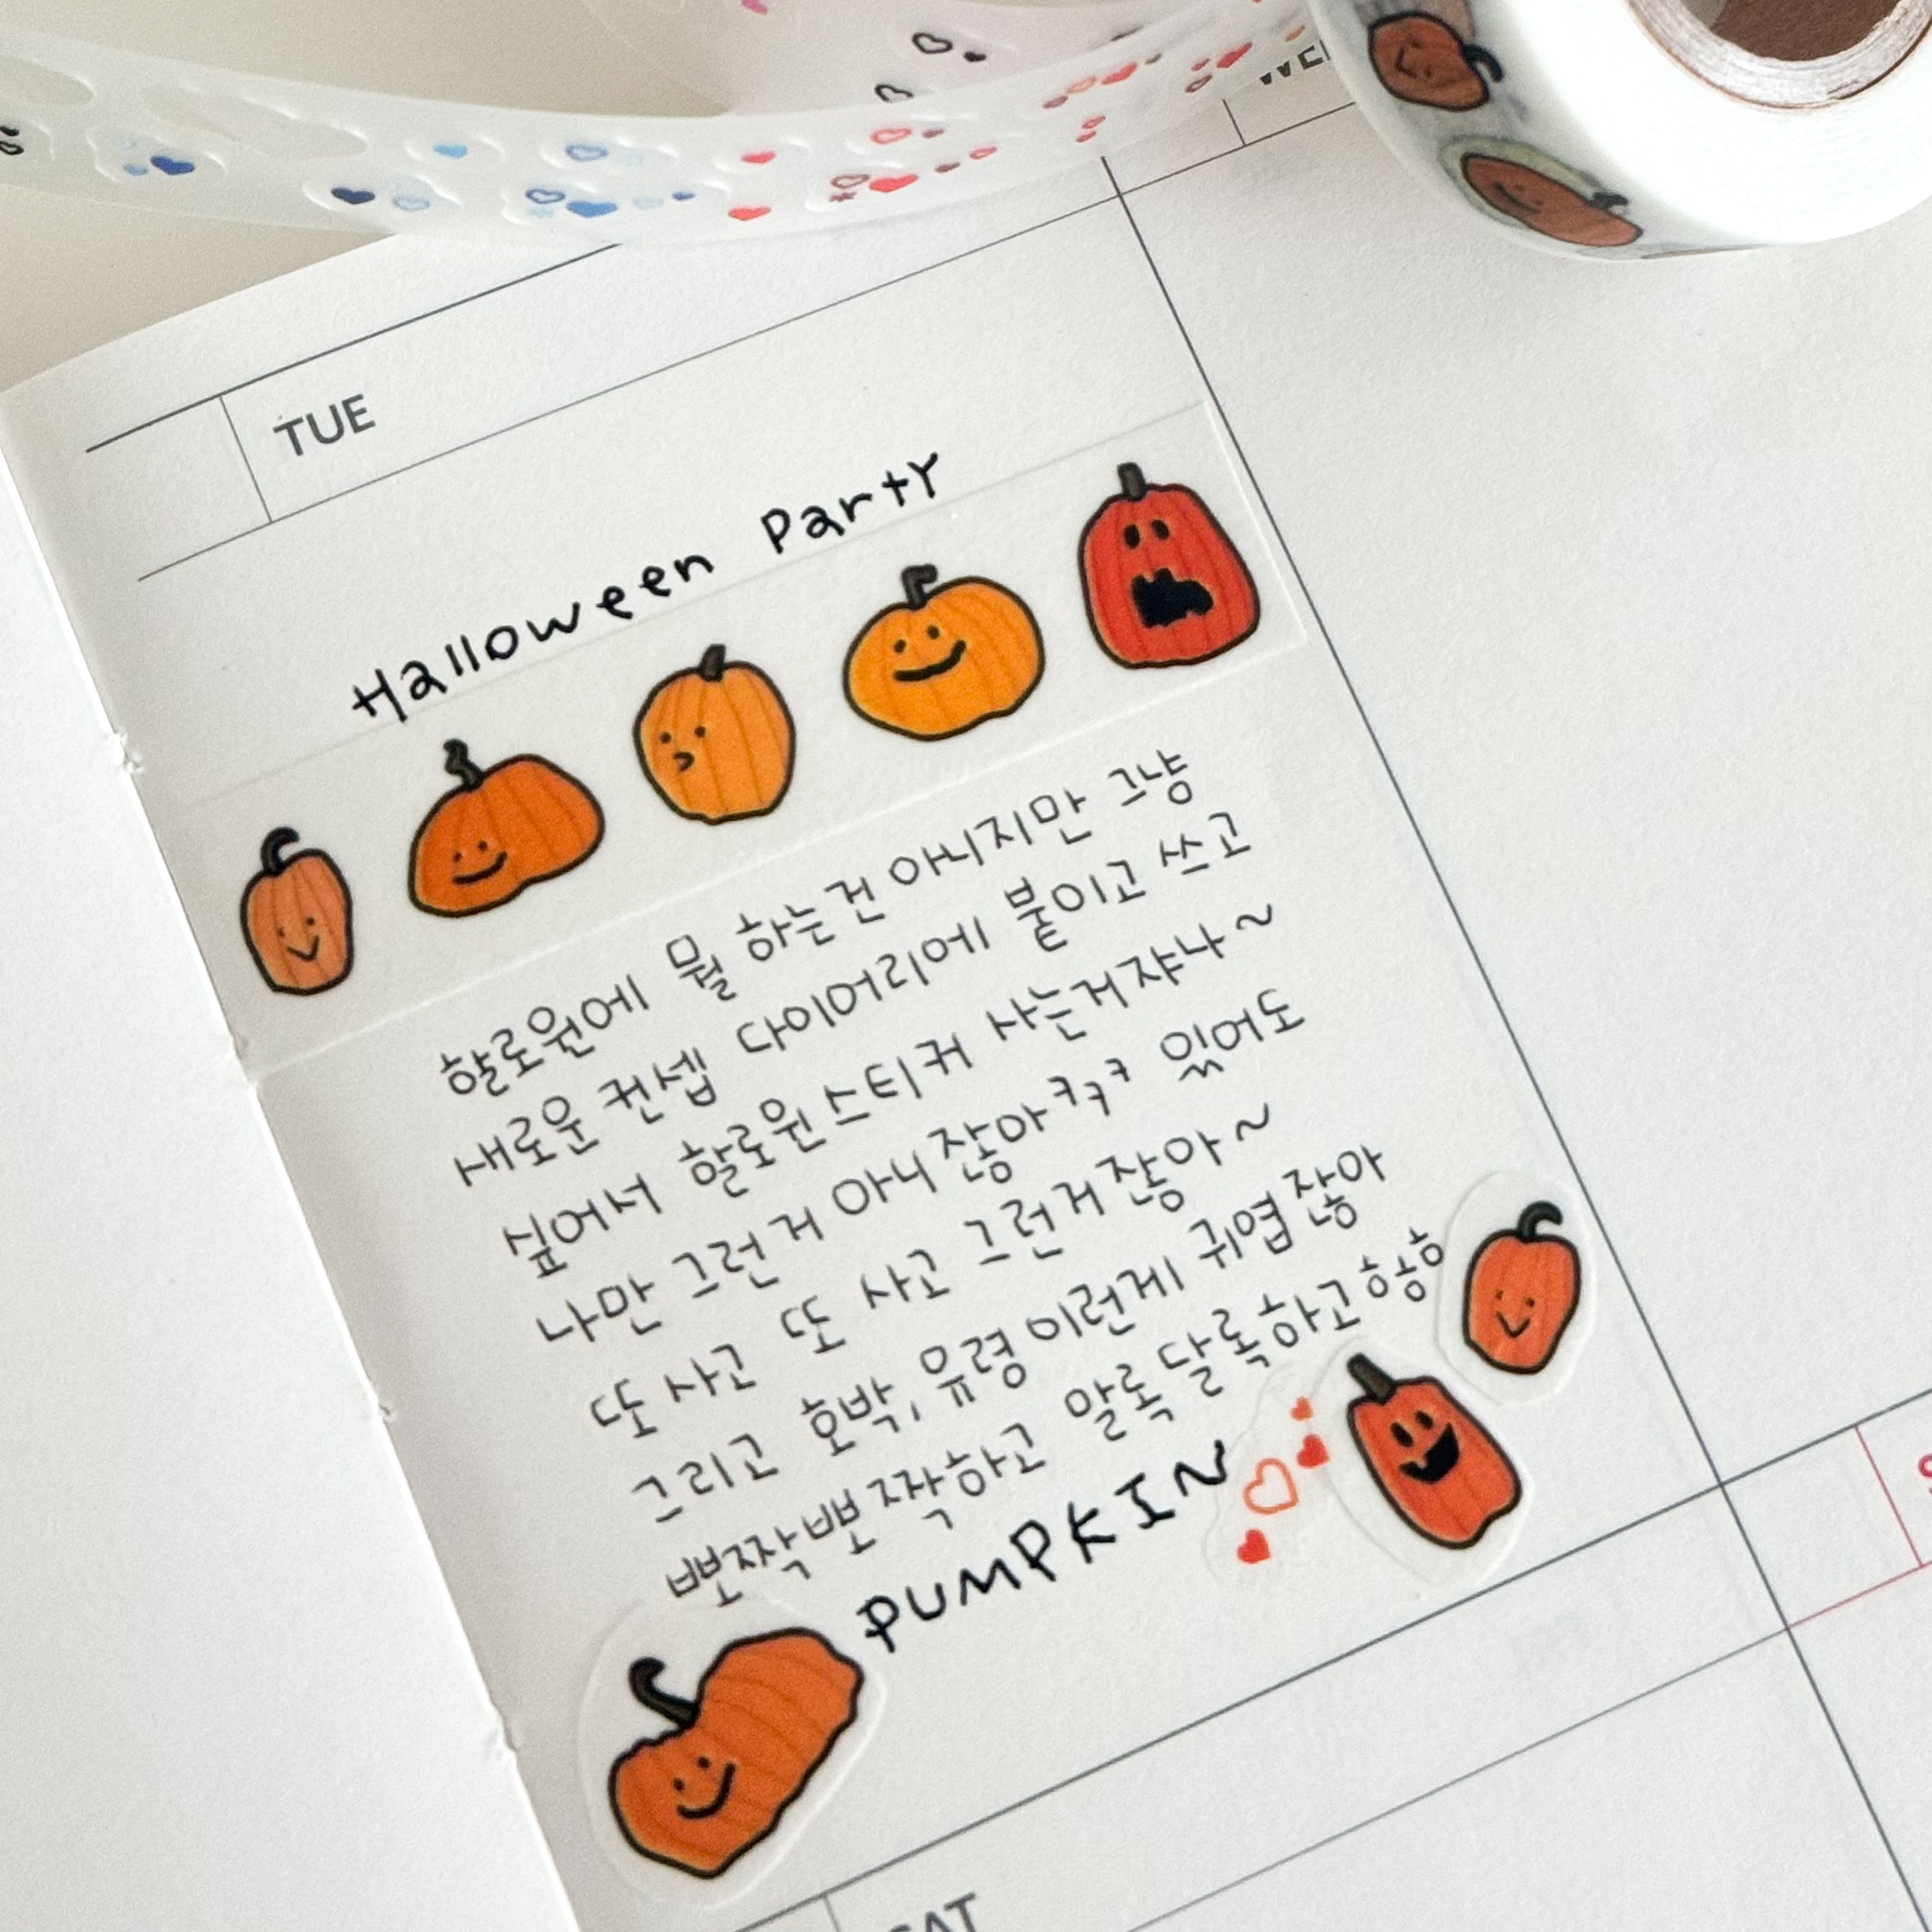 WE
TUE
Halloween Party
할로윈에 뭘 하는건 아니지만 그냥
새로운 컨셉 다이어리에 붙이고 쓰고
싶어서 할로윈 스티커 사는거쟈나~
나만 그런거 아니잖아ㅋㅋㅋ 있어도
또 사고 또 사고 그런거잖아~
그리고 호박, 유령 이런게 귀엽잖아
뽀짝뽀짝하고 말록달록하고 ㅎㅎㅎ
PUMPKIN
SAT